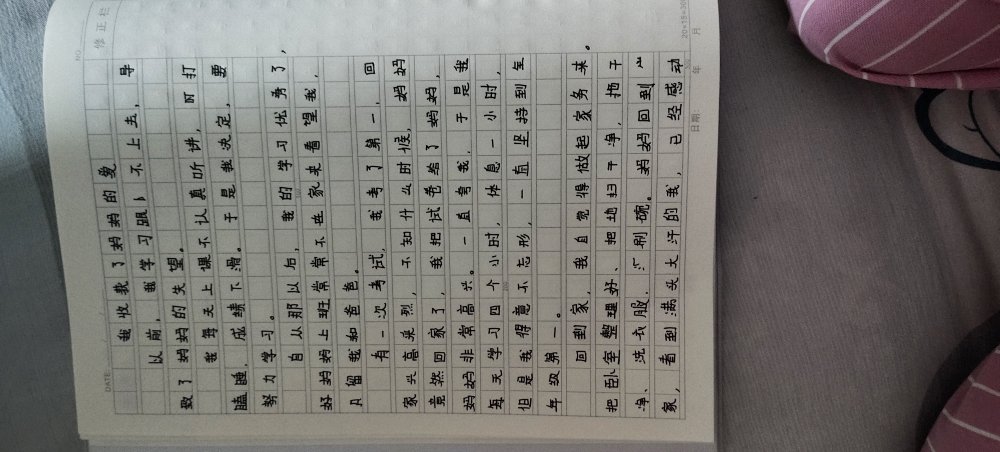 NO
修正栏
DATE
我收获了妈妈的爱
以前，我学习跟不上去，导
致了妈妈的失望。
我每天上课不认真听讲，可打
瞌睡，成绩下滑。于是我决定，要
努力学习。
自从那以后，我的学习优秀了，
好妈妈上班常常不在家央看望我，
只留我和爸爸。
有一次考试，我考了第一，回
家兴高采烈，不知什么时候，妈妈
竟然回家了，我把试卷给了妈妈，
妈妈非常高兴。一直夸我，于是我
每天学习四个小时，体息一小时，
但是我得意不忘形，一直坚持到全
年级第一。
回到家，我自觉得做起家务来。
把卧室整理好、把地扫干净，拖干
净、洗衣服、刷碗。妈妈回到
家，看到满头大汗的我，已经感动
20×15=300
日期： 年 月